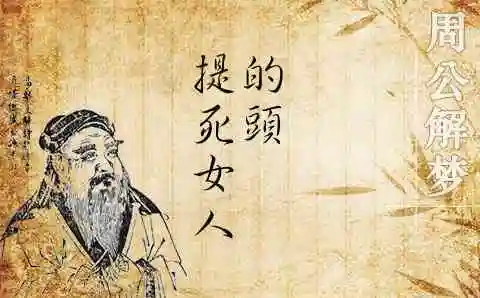 周公解梦
提死女人
的頭